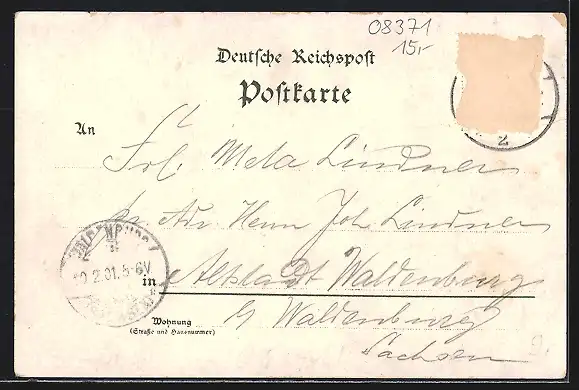 08371
15,-
Deutsche Reichspost
Postkarte
An
Frl. Meta Lindner
Adr Herrn Joh Lindner
in Altstadt Waldenburg
b/ Waldenburg
Sachsen
Wohnung
(Straße und Hausnummer)
WALDENBURG
2.01.5-6V
2